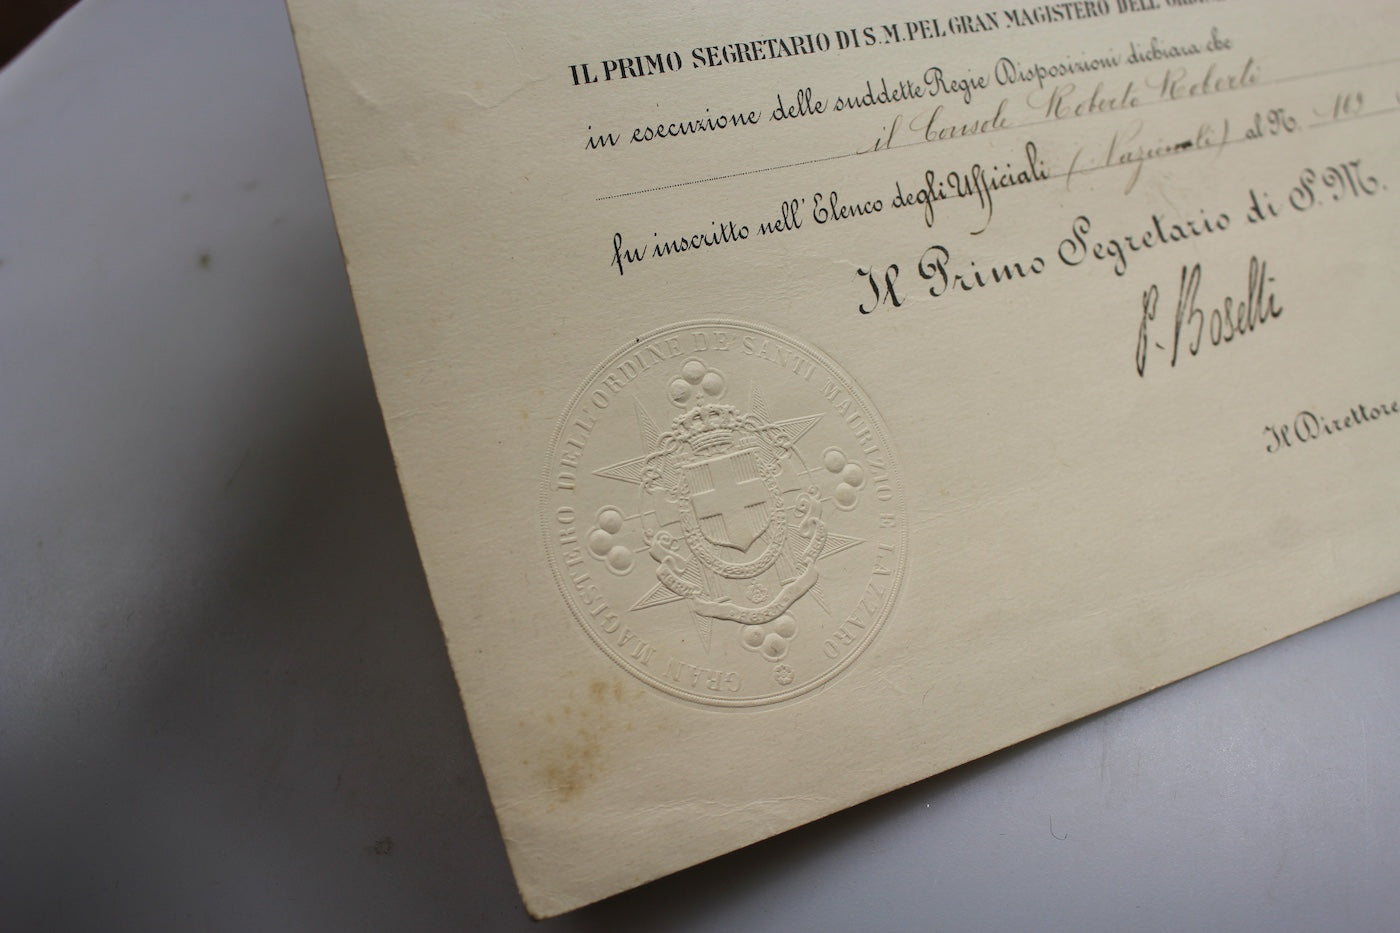 IL PRIMO SEGRETARIO DI S. M. PEL GRAN MAGISTERO DELL'
in esecuzione delle suddette Regie Disposizioni dichiara che
il Console Roberto Roberti
fu inscritto nell' Elenco degli Ufficiali (Nazionali) al N. 109
Il Primo Segretario di S. M.
P. Boselli
Il Direttore
GRAN MAGISTERO DELL'ORDINE DE' SANTI MAURIZIO E LAZZARO